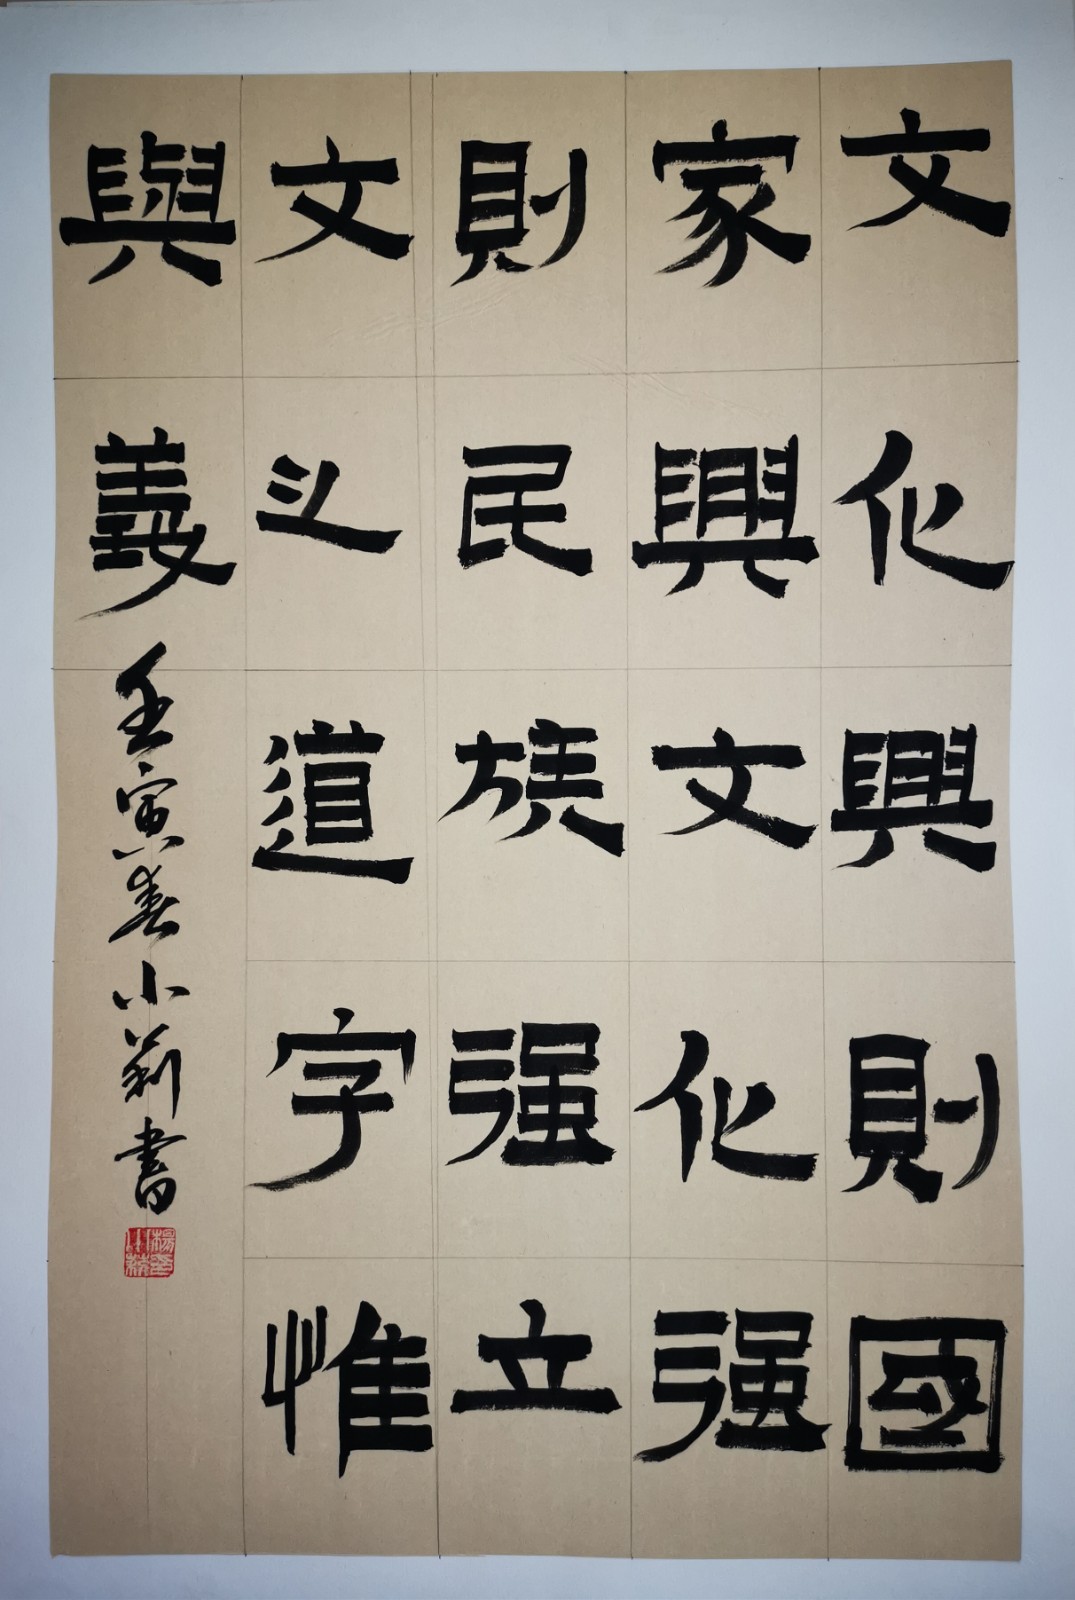 文化興則國
家興文化强
則民族强立
文之道字惟
與義
壬寅春小莉書
楊小莉印